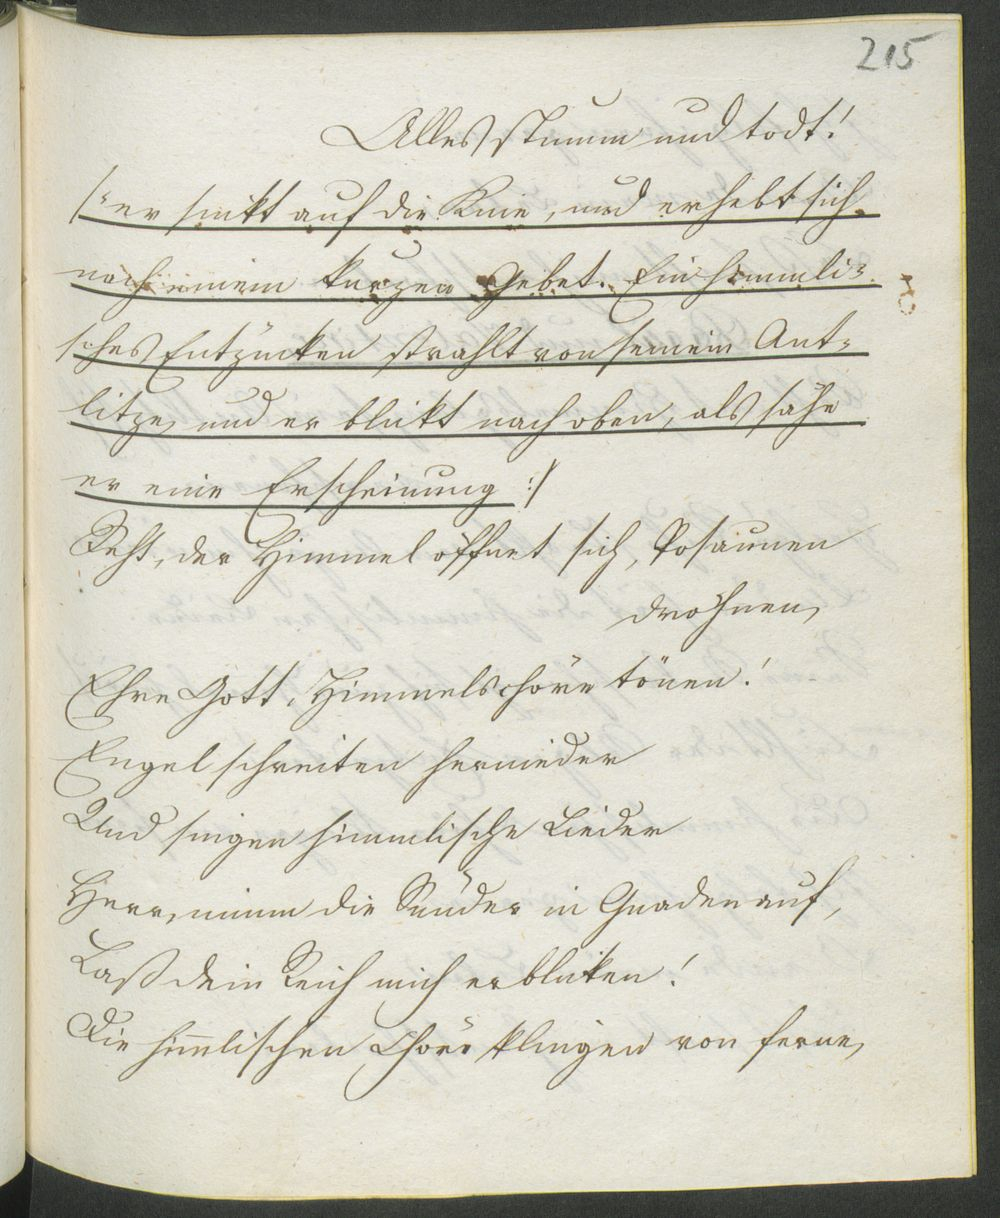 215
Alles stumm und todt!
/: er sinkt auf die Knie, und erhebt sich
nach einem kurzen Gebet. Ein himmli=
sches Entzücken strahlt von seinem Ant=
litze, und er blickt nach oben, als sähe
er eine Erscheinung :/
Seht, der Himmel öffnet sich, Posaunen
dröhnen,
Ehre Gott, Himmelschöre tönen!
Engel schreiten hernieder
Und singen himmlische Lieder
Herr, nimm die Sünder in Gnaden auf,
Laß dein Reich mich erblicken!
Die himlischen Chöre klingen von ferne,